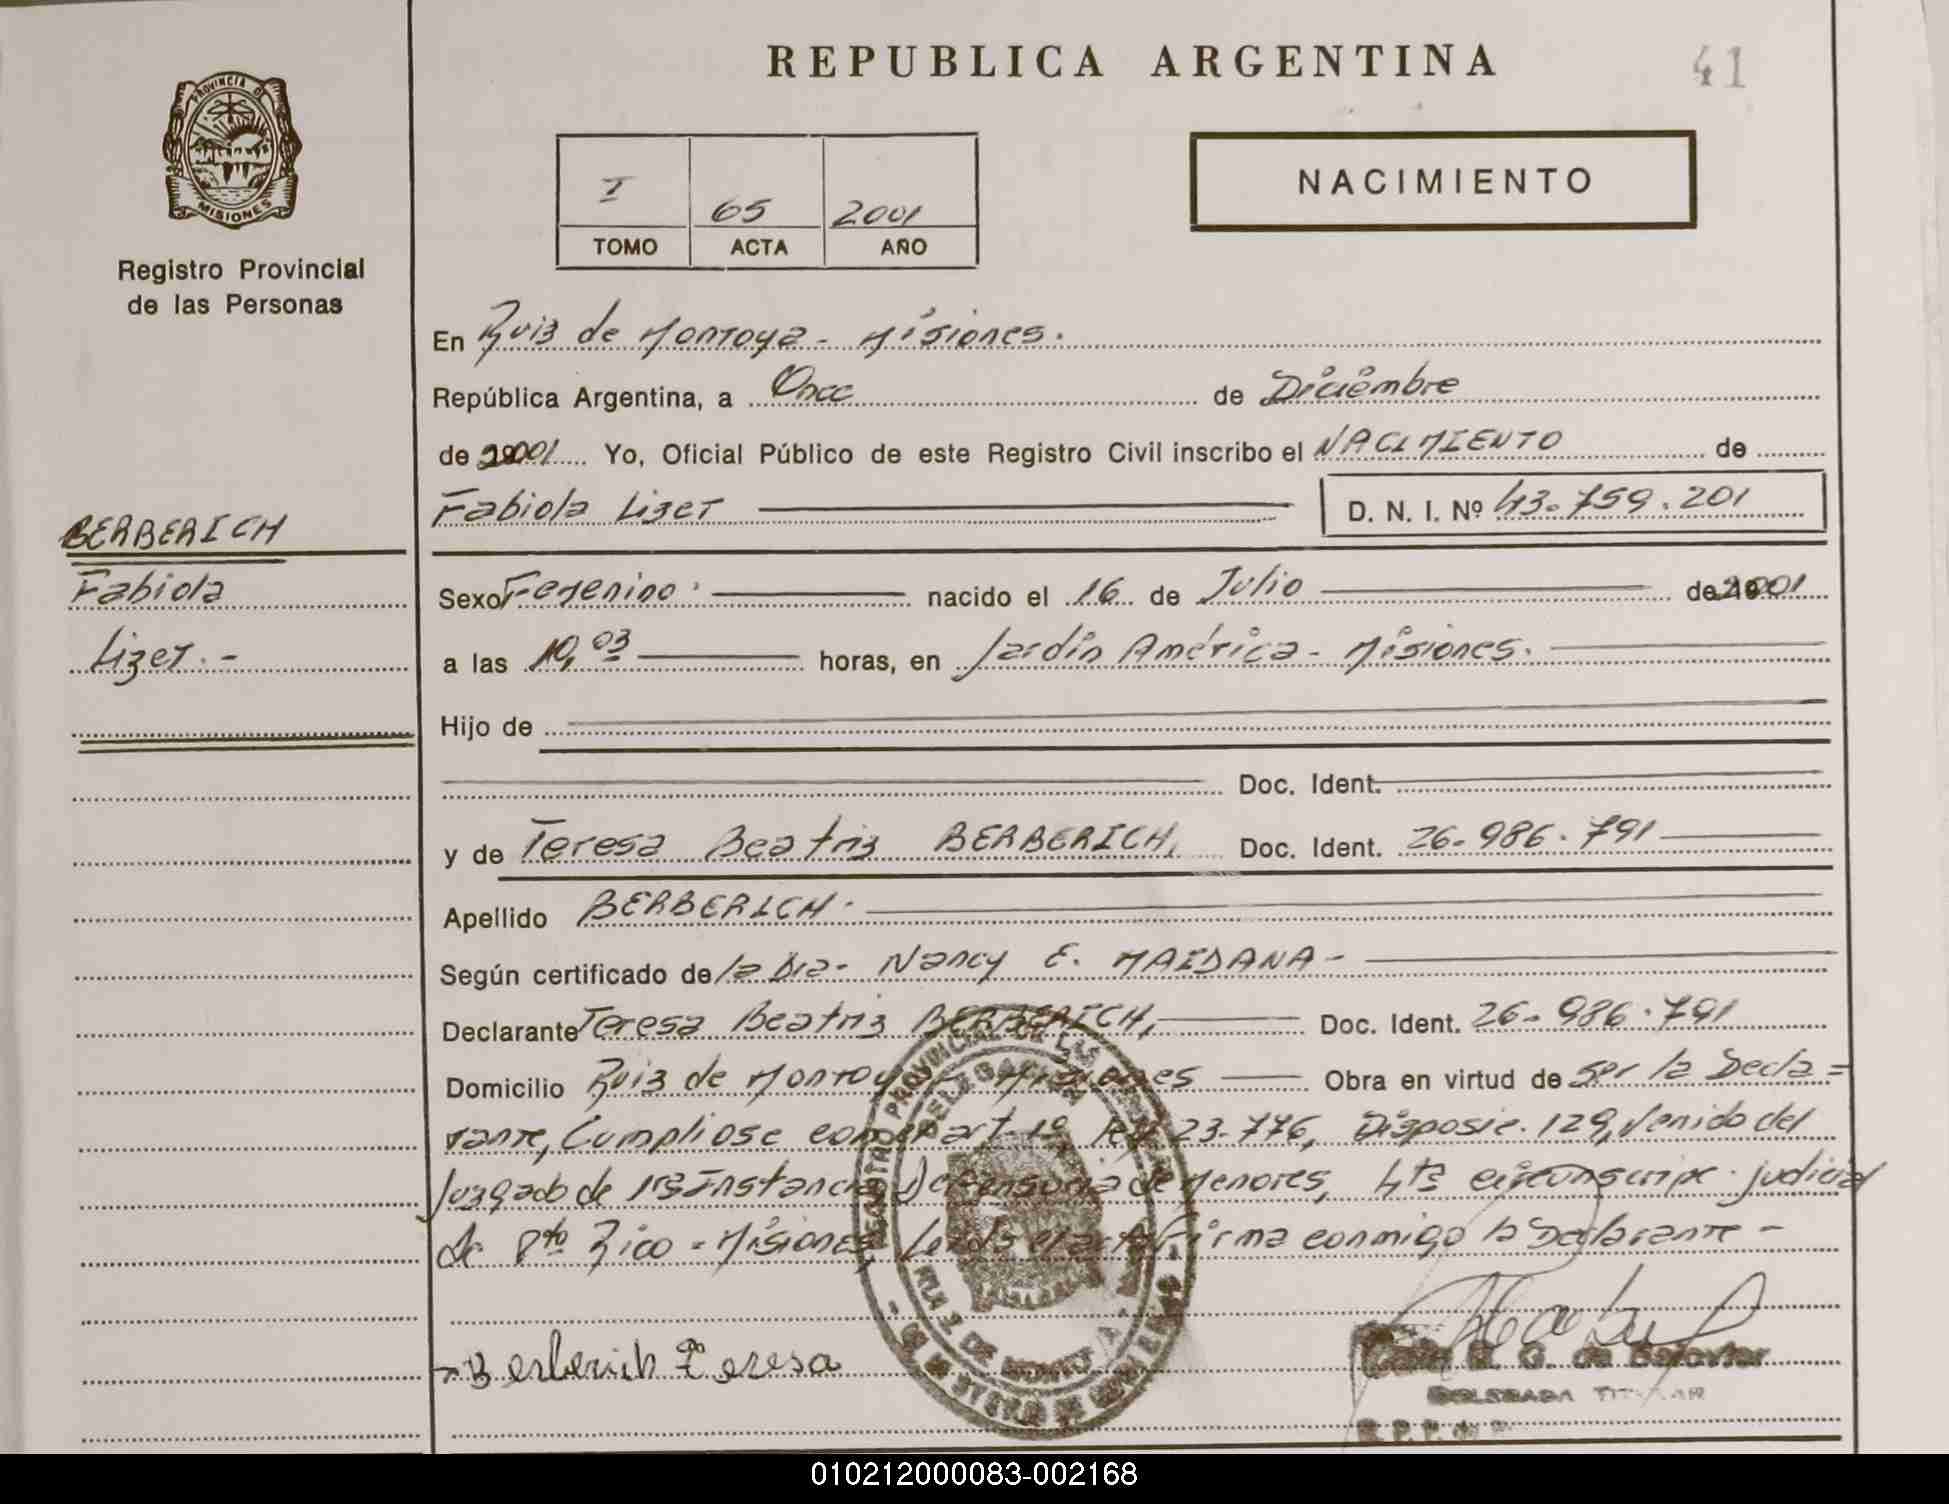 REPUBLICA ARGENTINA
41
PROVINCIA DE
MISIONES
Registro Provincial
de las Personas
I 65 2001
TOMO ACTA AÑO
NACIMIENTO
En Ruiz de Montoya - Misiones.
República Argentina, a Once de Diciembre
de 2001 Yo, Oficial Público de este Registro Civil inscribo el NACIMIENTO de
Fabiola Lizet D. N. I. Nº 43.759.201
BERBERICH
Fabiola
Lizet.-
Sexo Femenino. nacido el 16 de Julio de 2001
a las 10,03 horas, en Jardín América - Misiones.
Hijo de
Doc. Ident.
y de Teresa Beatriz BERBERICH, Doc. Ident. 26.986.791
Apellido BERBERICH.
Según certificado de la Dra. Nancy E. MAIDANA -
Declarante Teresa Beatriz BERBERICH, Doc. Ident. 26.986.791
Domicilio Ruiz de Montoya - Misiones Obra en virtud de ser la Decla=
rante, Cumpliose con el art. 1º Ley 23.776, Disposic. 129, Venido del
Juzgado de 1ra Instancia, Defensoria de Menores, 4ta circonscripc. judicial
de Pto Rico - Misiones, Leida el acta Firma conmigo la Declarante -
Berberich Teresa
R. G. de
DELEGADA TITULAR
R. P. P. de
REGISTRO PROVINCIAL DE LAS
DELEGACION
RUIZ DE MONTOYA
MINISTERIO DE GOBIERNO
010212000083-002168